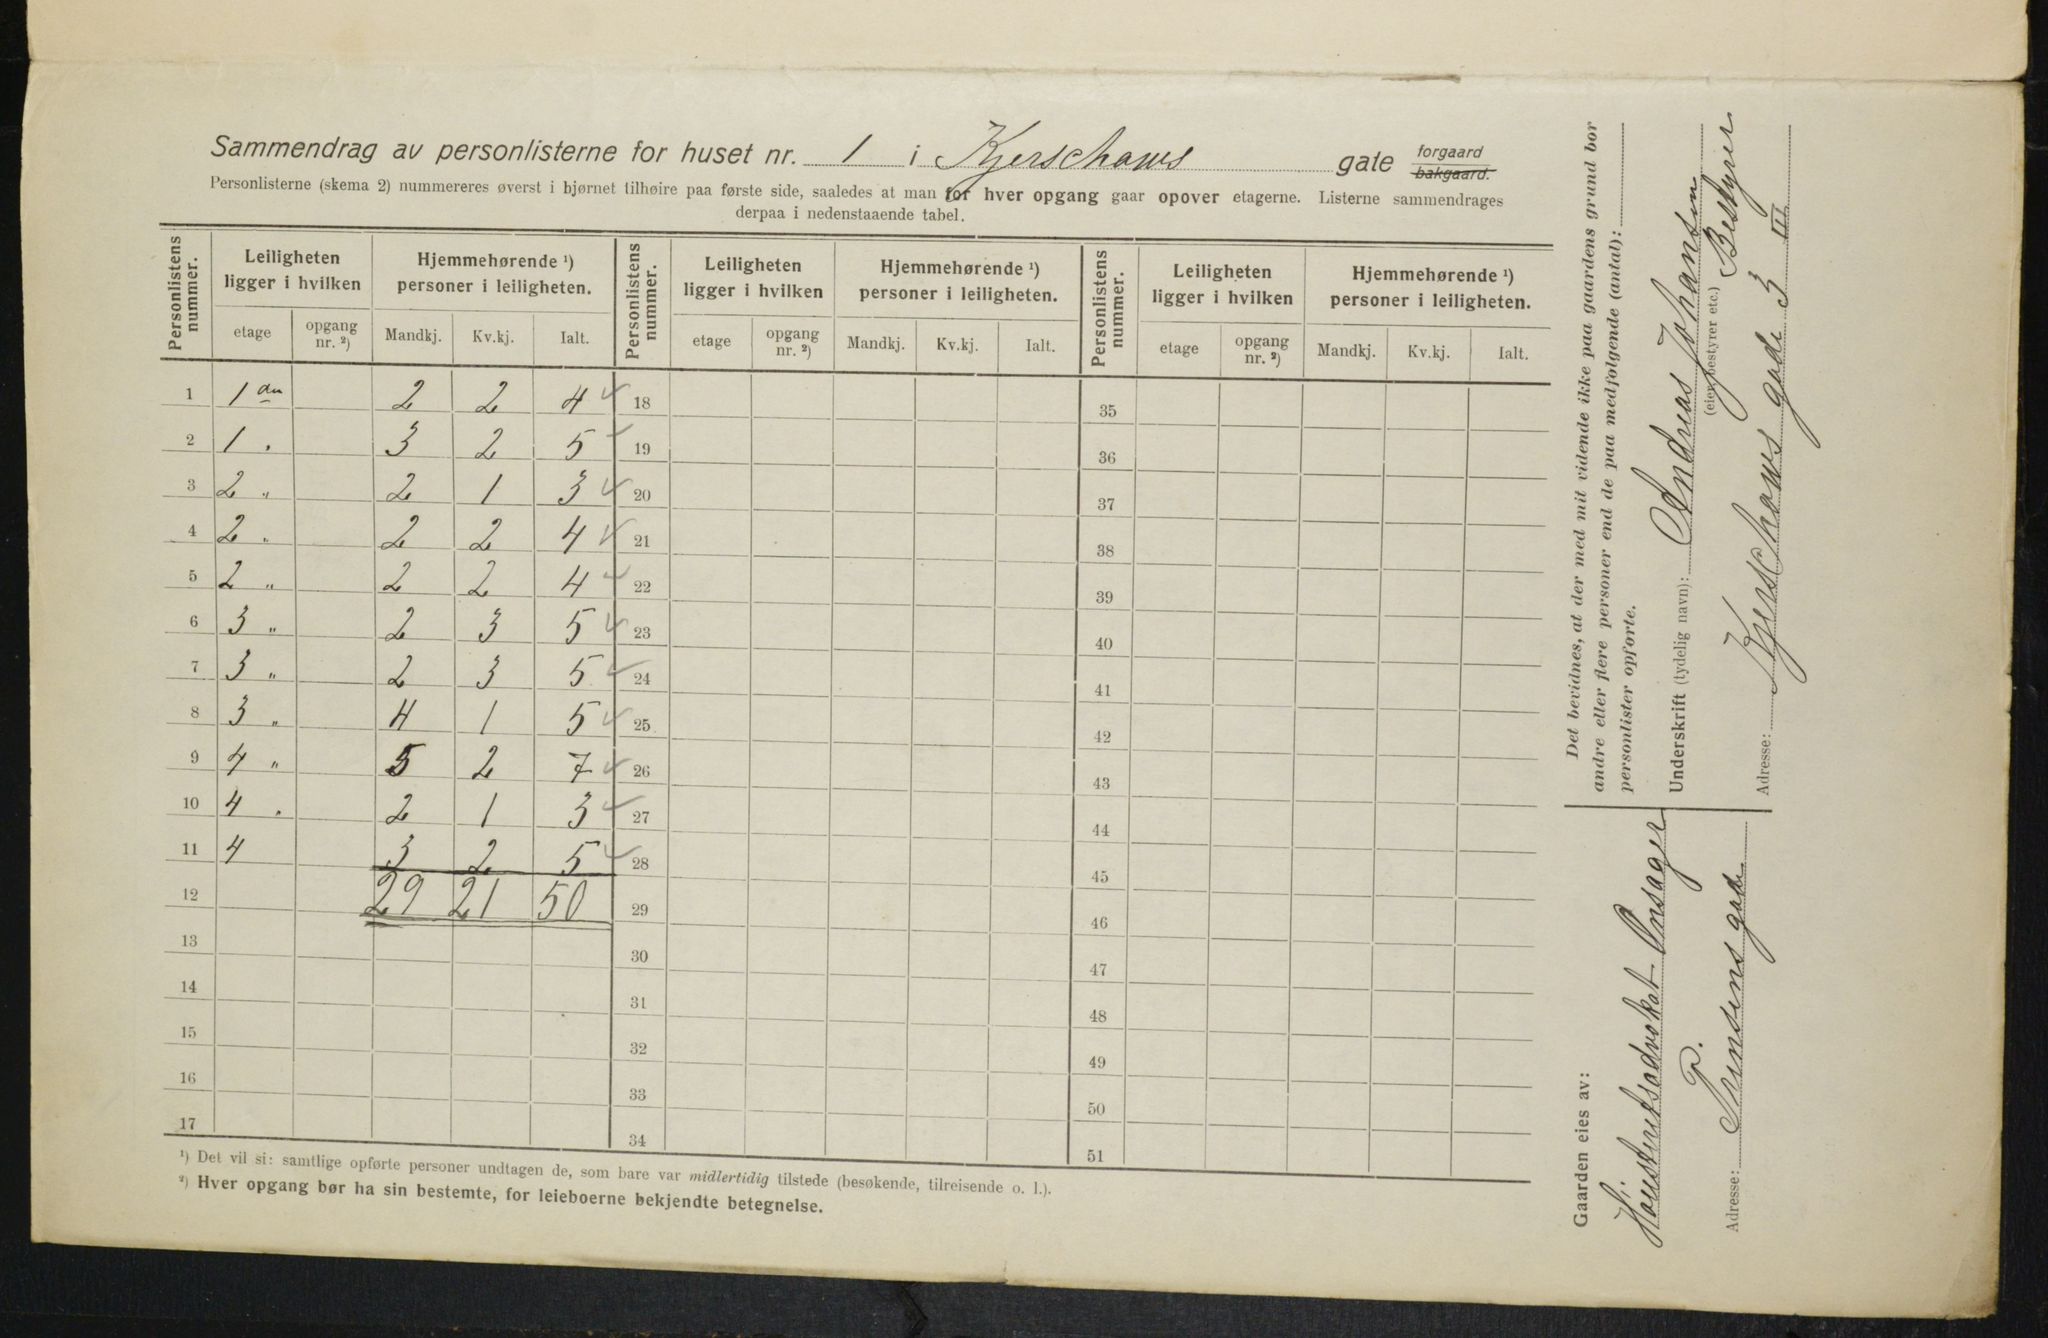 Sammendrag av personlisterne for huset nr. 1 i Kjerschows gate forgaard bakgaard.
Personlisterne (skema 2) nummereres øverst i hjørnet tilhøire paa første side, saaledes at man for hver opgang gaar opover etagerne. Listerne sammendrages
derpaa i nedenstaaende tabel.
Personlistens nummer. Leiligheten ligger i hvilken Hjemmehørende ¹) personer i leiligheten. Personlistens nummer. Leiligheten ligger i hvilken Hjemmehørende ¹) personer i leiligheten. Personlistens nummer. Leiligheten ligger i hvilken Hjemmehørende ¹) personer i leiligheten.
etage opgang nr. ²) Mandkj. Kv.kj. Ialt. etage opgang nr. ²) Mandkj. Kv.kj. Ialt. etage opgang nr. ²) Mandkj. Kv.kj. Ialt.
1 1 den 2 2 4 18 35
2 1 " 3 2 5 19 36
3 2 " 2 1 3 20 37
4 2 " 2 2 4 21 38
5 2 " 2 2 4 22 39
6 3 " 2 3 5 23 40
7 3 " 2 3 5 24 41
8 3 " 4 1 5 25 42
9 4 " 5 2 7 26 43
10 4 " 2 1 3 27 44
11 4 3 2 5 28 45
12 29 21 50 29 46
13 30 47
14 31 48
15 32 49
16 33 50
17 34 51
¹) Det vil si: samtlige opførte personer undtagen de, som bare var midlertidig tilstede (besøkende, tilreisende o. l.).
²) Hver opgang bør ha sin bestemte, for leieboerne bekjendte betegnelse.
Det bevidnes, at der med mit vidende ikke paa gaardens grund bor
andre eller flere personer end de paa medfølgende (antal):
personlister opførte.
Underskrift (tydelig navn): Andreas Johansen
(eier, bestyrer etc.) Bestyrer
Adresse: Kjerschows gade 3 III
Gaarden eies av:
Høiesteretsadvokat Onsager
P.
Adresse: Prinsens gade